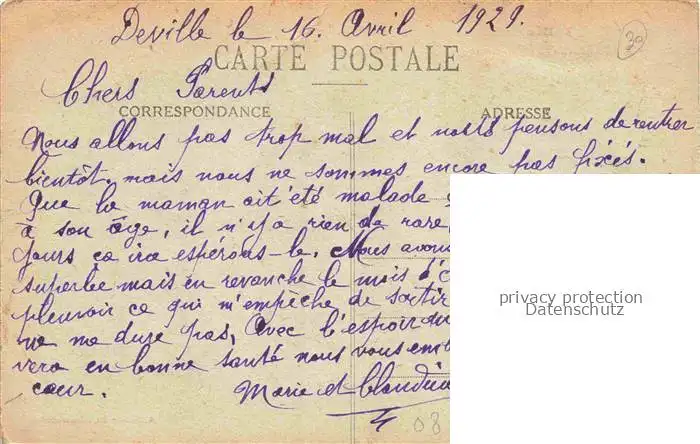 Deville le 16 Avril 1929.
30
CARTE POSTALE
Chers Parents
CORRESPONDANCE
ADRESSE
Nous allons pas trop mal et nous pensons de rentrer
bientôt. mais nous ne sommes encore pas fixés.
Que la maman ait été malade
à son âge, il n'y a rien de rare,
jours ça ira espérons-le. Nous avons
superbe mais en revanche le mois d'
pleuvoir ce qui m'empêche de sortir
ne me dure pas, Avec l'espoir
vera en bonne santé nous vous em
cœur. Marie et
08
privacy protection
Datenschutz